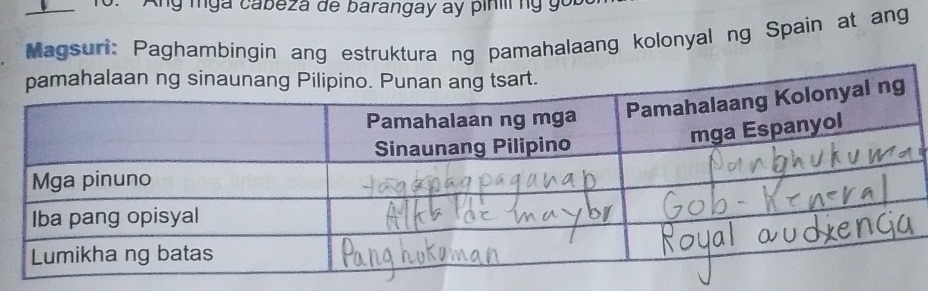 10. Ang mga cabeza de barangay ay pinili ng
Magsuri: Paghambingin ang estruktura ng pamahalaang kolonyal ng Spain at ang
pamahalaan ng sinaunang Pilipino. Punan ang tsart.
Pamahalaan ng mga
Sinaunang Pilipino
Pamahalaang Kolonyal ng
mga Espanyol
Mga pinuno
tagapagpaganap
Panghukuma
Iba pang opisyal
Alkalde mayor
Gob-Keneral
Lumikha ng batas
Panghukuman
Royal audxencia